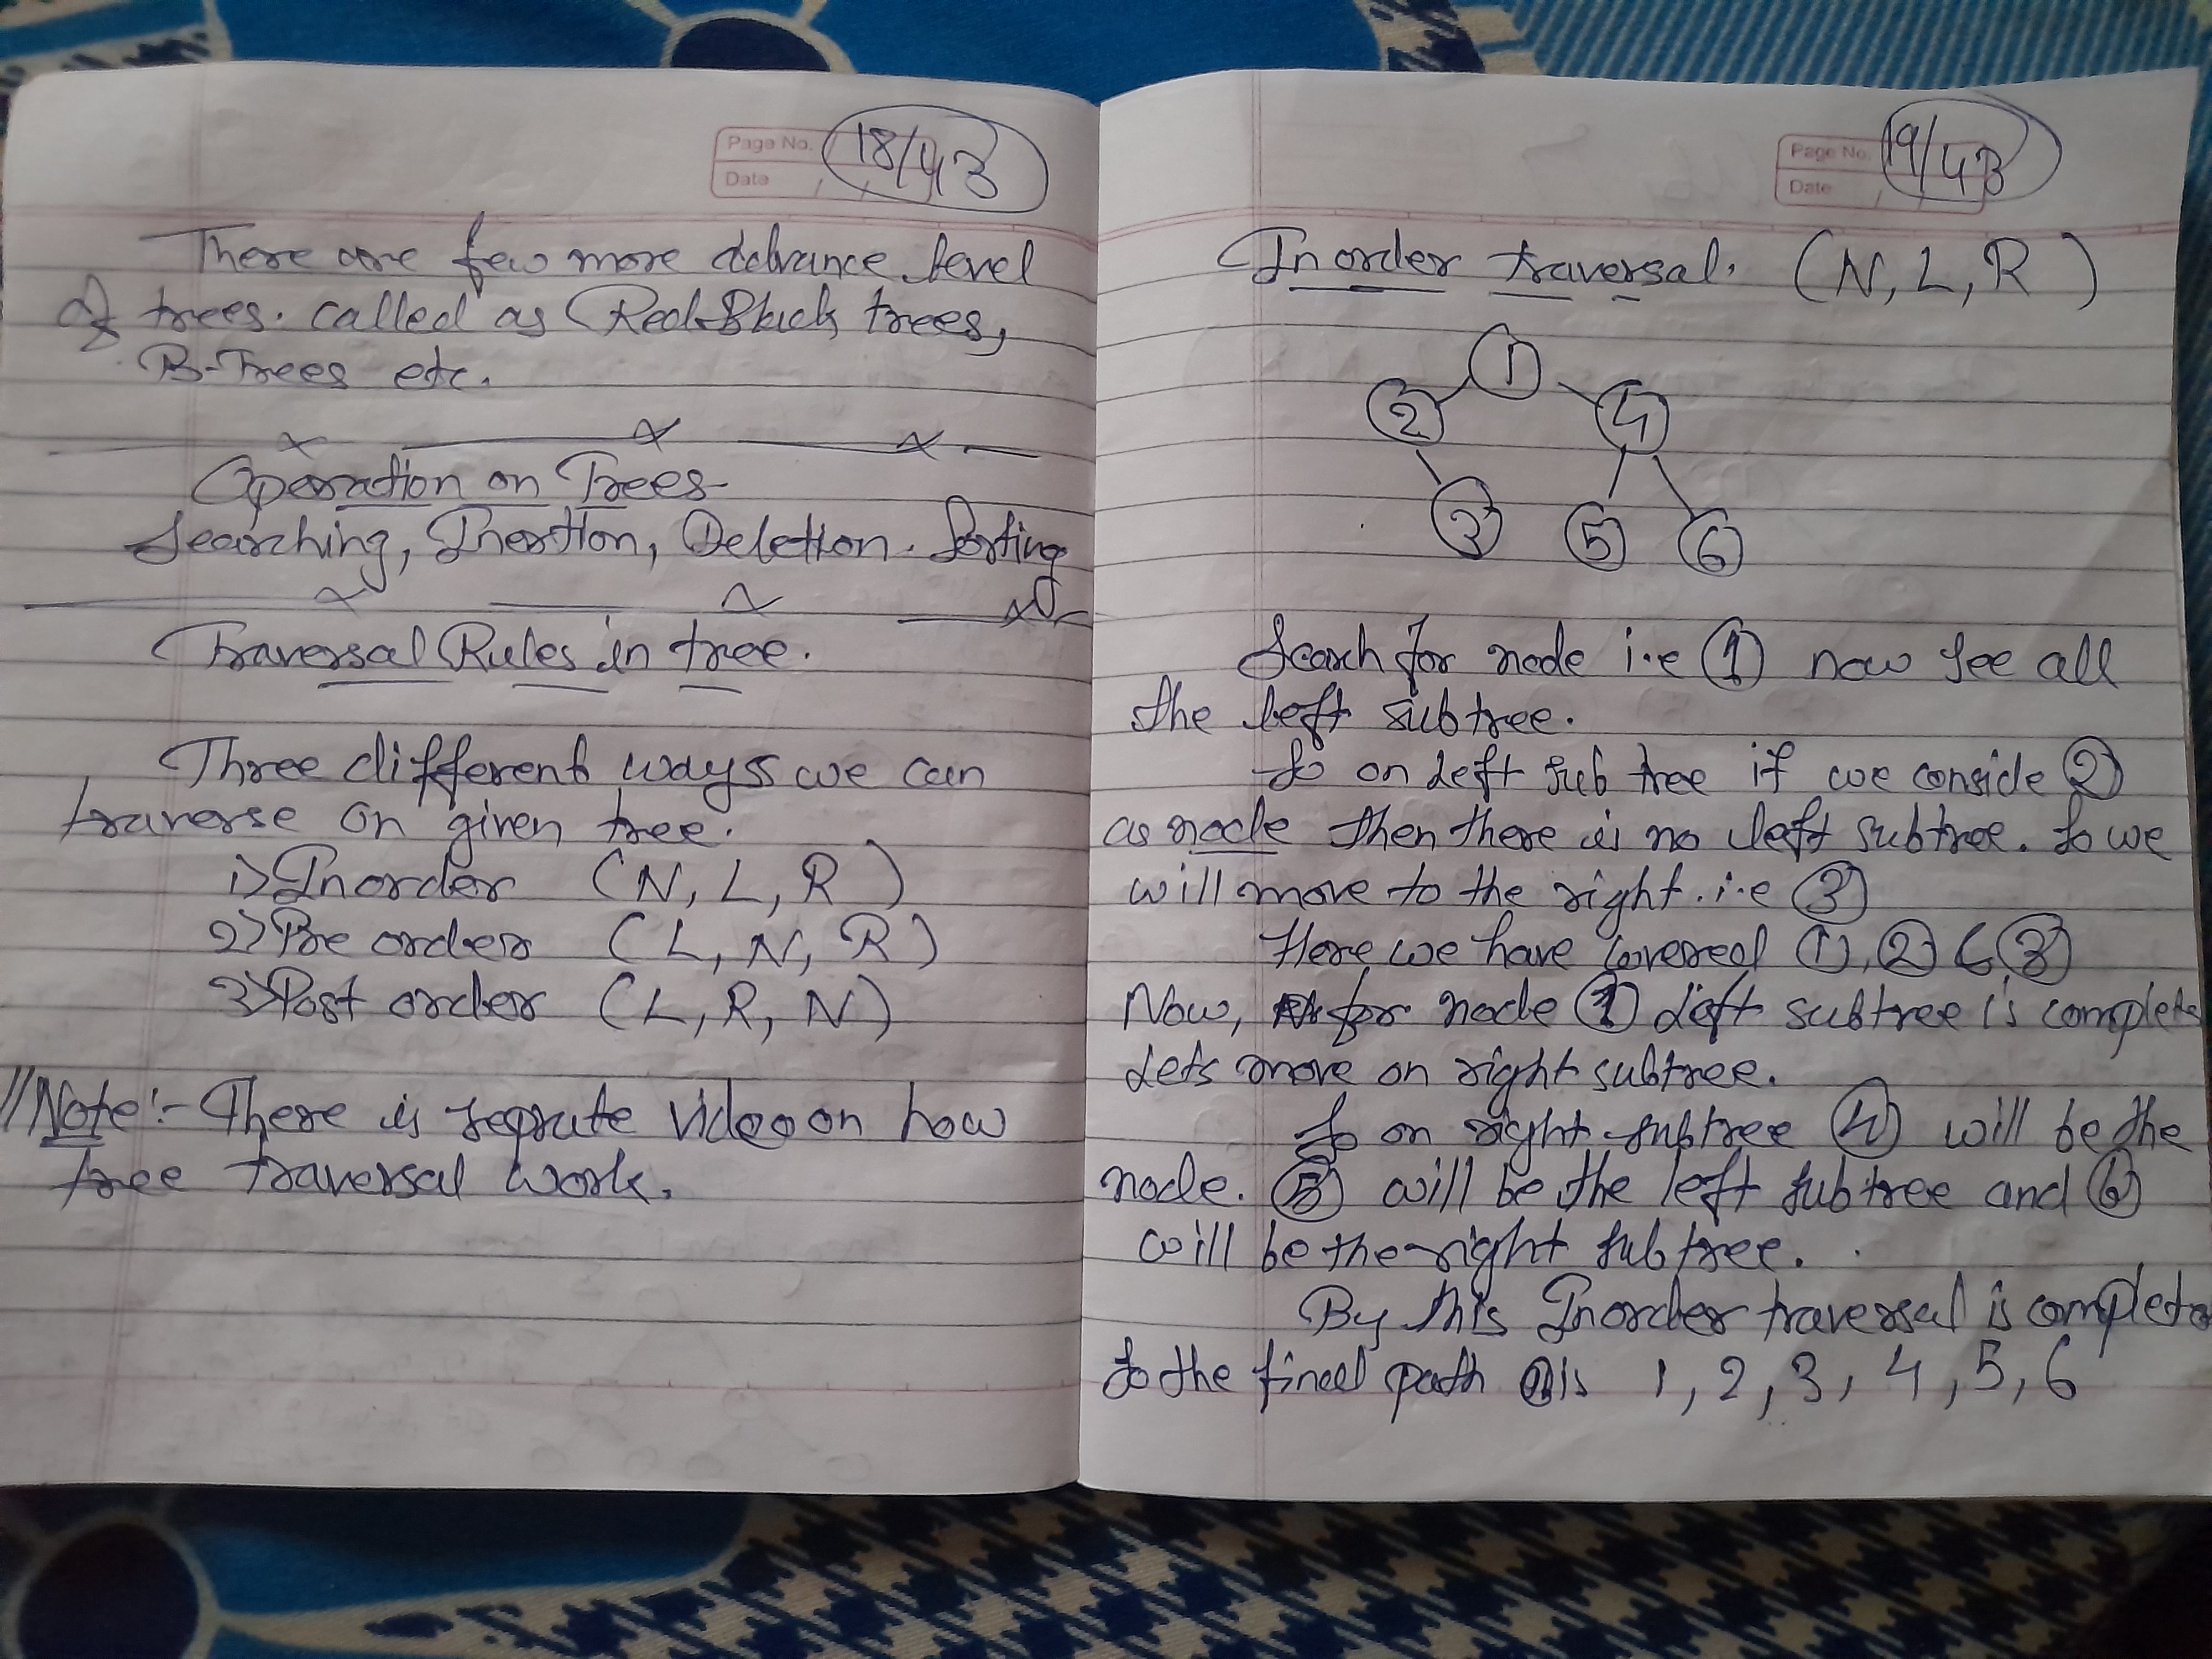 Page No. 18/43
Date / /
There are few more advance level
of trees. called as Red-Black trees,
B-Trees etc.
Operation on Trees-
Searching, Insertion, Deletion. Sorting
Traversal Rules in tree.
Three different ways we can
traverse on given tree.
1) Inorder (N, L, R)
2) Pre order (L, N, R)
3) Post order (L, R, N)
// Note:- There is seprate video on how
tree traversal work.
Page No. 19/43
Date /
Inorder traversal. (N, L, R)
1
2 4
3 5 6
Search for node i.e 1 now see all
the left subtree.
So on left sub tree if we conside 2
as node then there is no left subtree. So we
will move to the right. i.e 3
Here we have covered 1, 2 & 3
Now, for node 1 left subtree is complete
Lets move on right subtree.
So on right subtree 4 will be the
node. 5 will be the left subtree and 6
will be the right subtree.
By this Inorder traversal is complete
So the final path is 1, 2, 3, 4, 5, 6